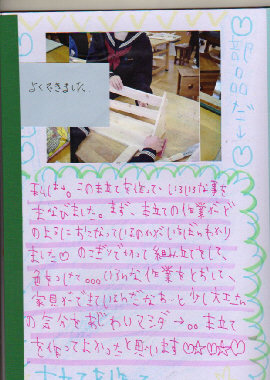 よくできました。
部品だ→
この本立てを作って いろいろな事を
まなびました。まず、本立ての作業がど
のようにおこなっているのかがいちばんわかり
ました♡のこぎりで切って組み立てをして、
いろんな作業をとおして、
家具ができているんだなぁーと少し大工さん
の気分をあじわりマシタ→。。本立て
を作ってよかったと思います♡☆♡☆♡